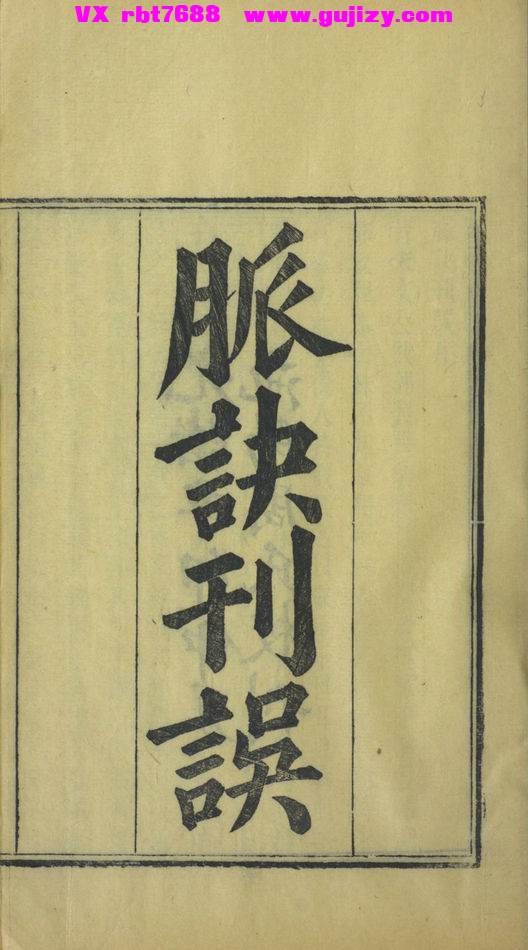 VX rbt7688 www.gujizy.com
脈訣刊誤